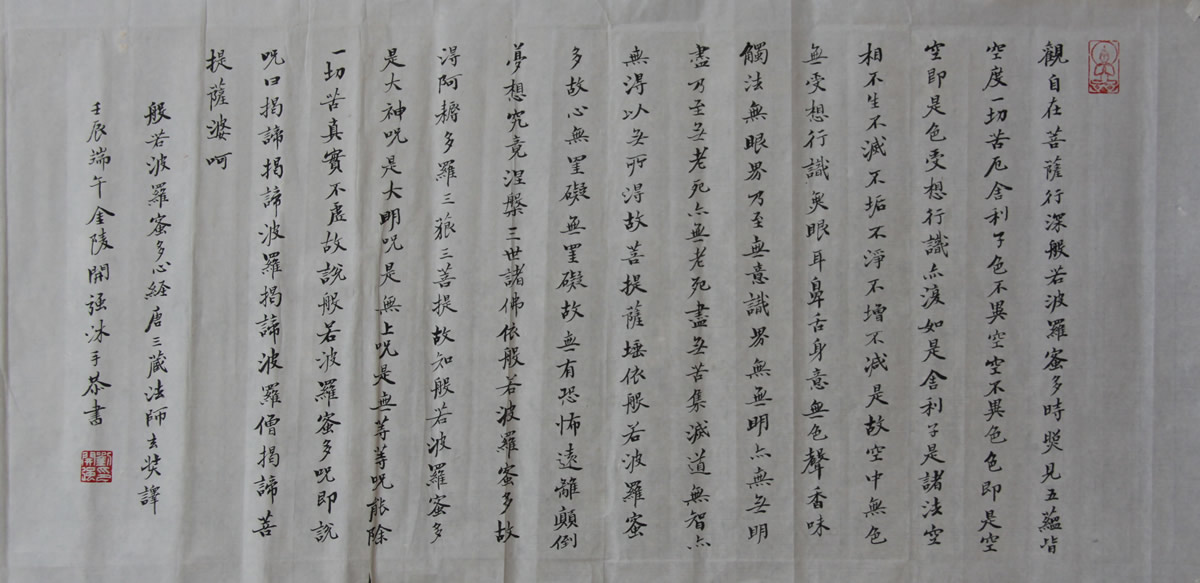 觀自在菩薩行深般若波羅蜜多時照見五蘊皆
空度一切苦厄舍利子色不異空空不異色色即是空
空即是色受想行識亦復如是舍利子是諸法空
相不生不滅不垢不淨不增不減是故空中無色
無受想行識無眼耳鼻舌身意無色聲香味
觸法無眼界乃至無意識界無無明亦無無明
盡乃至無老死亦無老死盡無苦集滅道無智亦
無得以無所得故菩提薩埵依般若波羅蜜
多故心無罣礙無罣礙故無有恐怖遠離顛倒
夢想究竟涅槃三世諸佛依般若波羅蜜多故
得阿耨多羅三藐三菩提故知般若波羅蜜多
是大神咒是大明咒是無上咒是無等等咒能除
一切苦真實不虛故說般若波羅蜜多咒即說
咒曰揭諦揭諦波羅揭諦波羅僧揭諦菩
提薩婆呵
般若波羅蜜多心經唐三藏法師玄奘譯
壬辰端午金陵開強沐手恭書